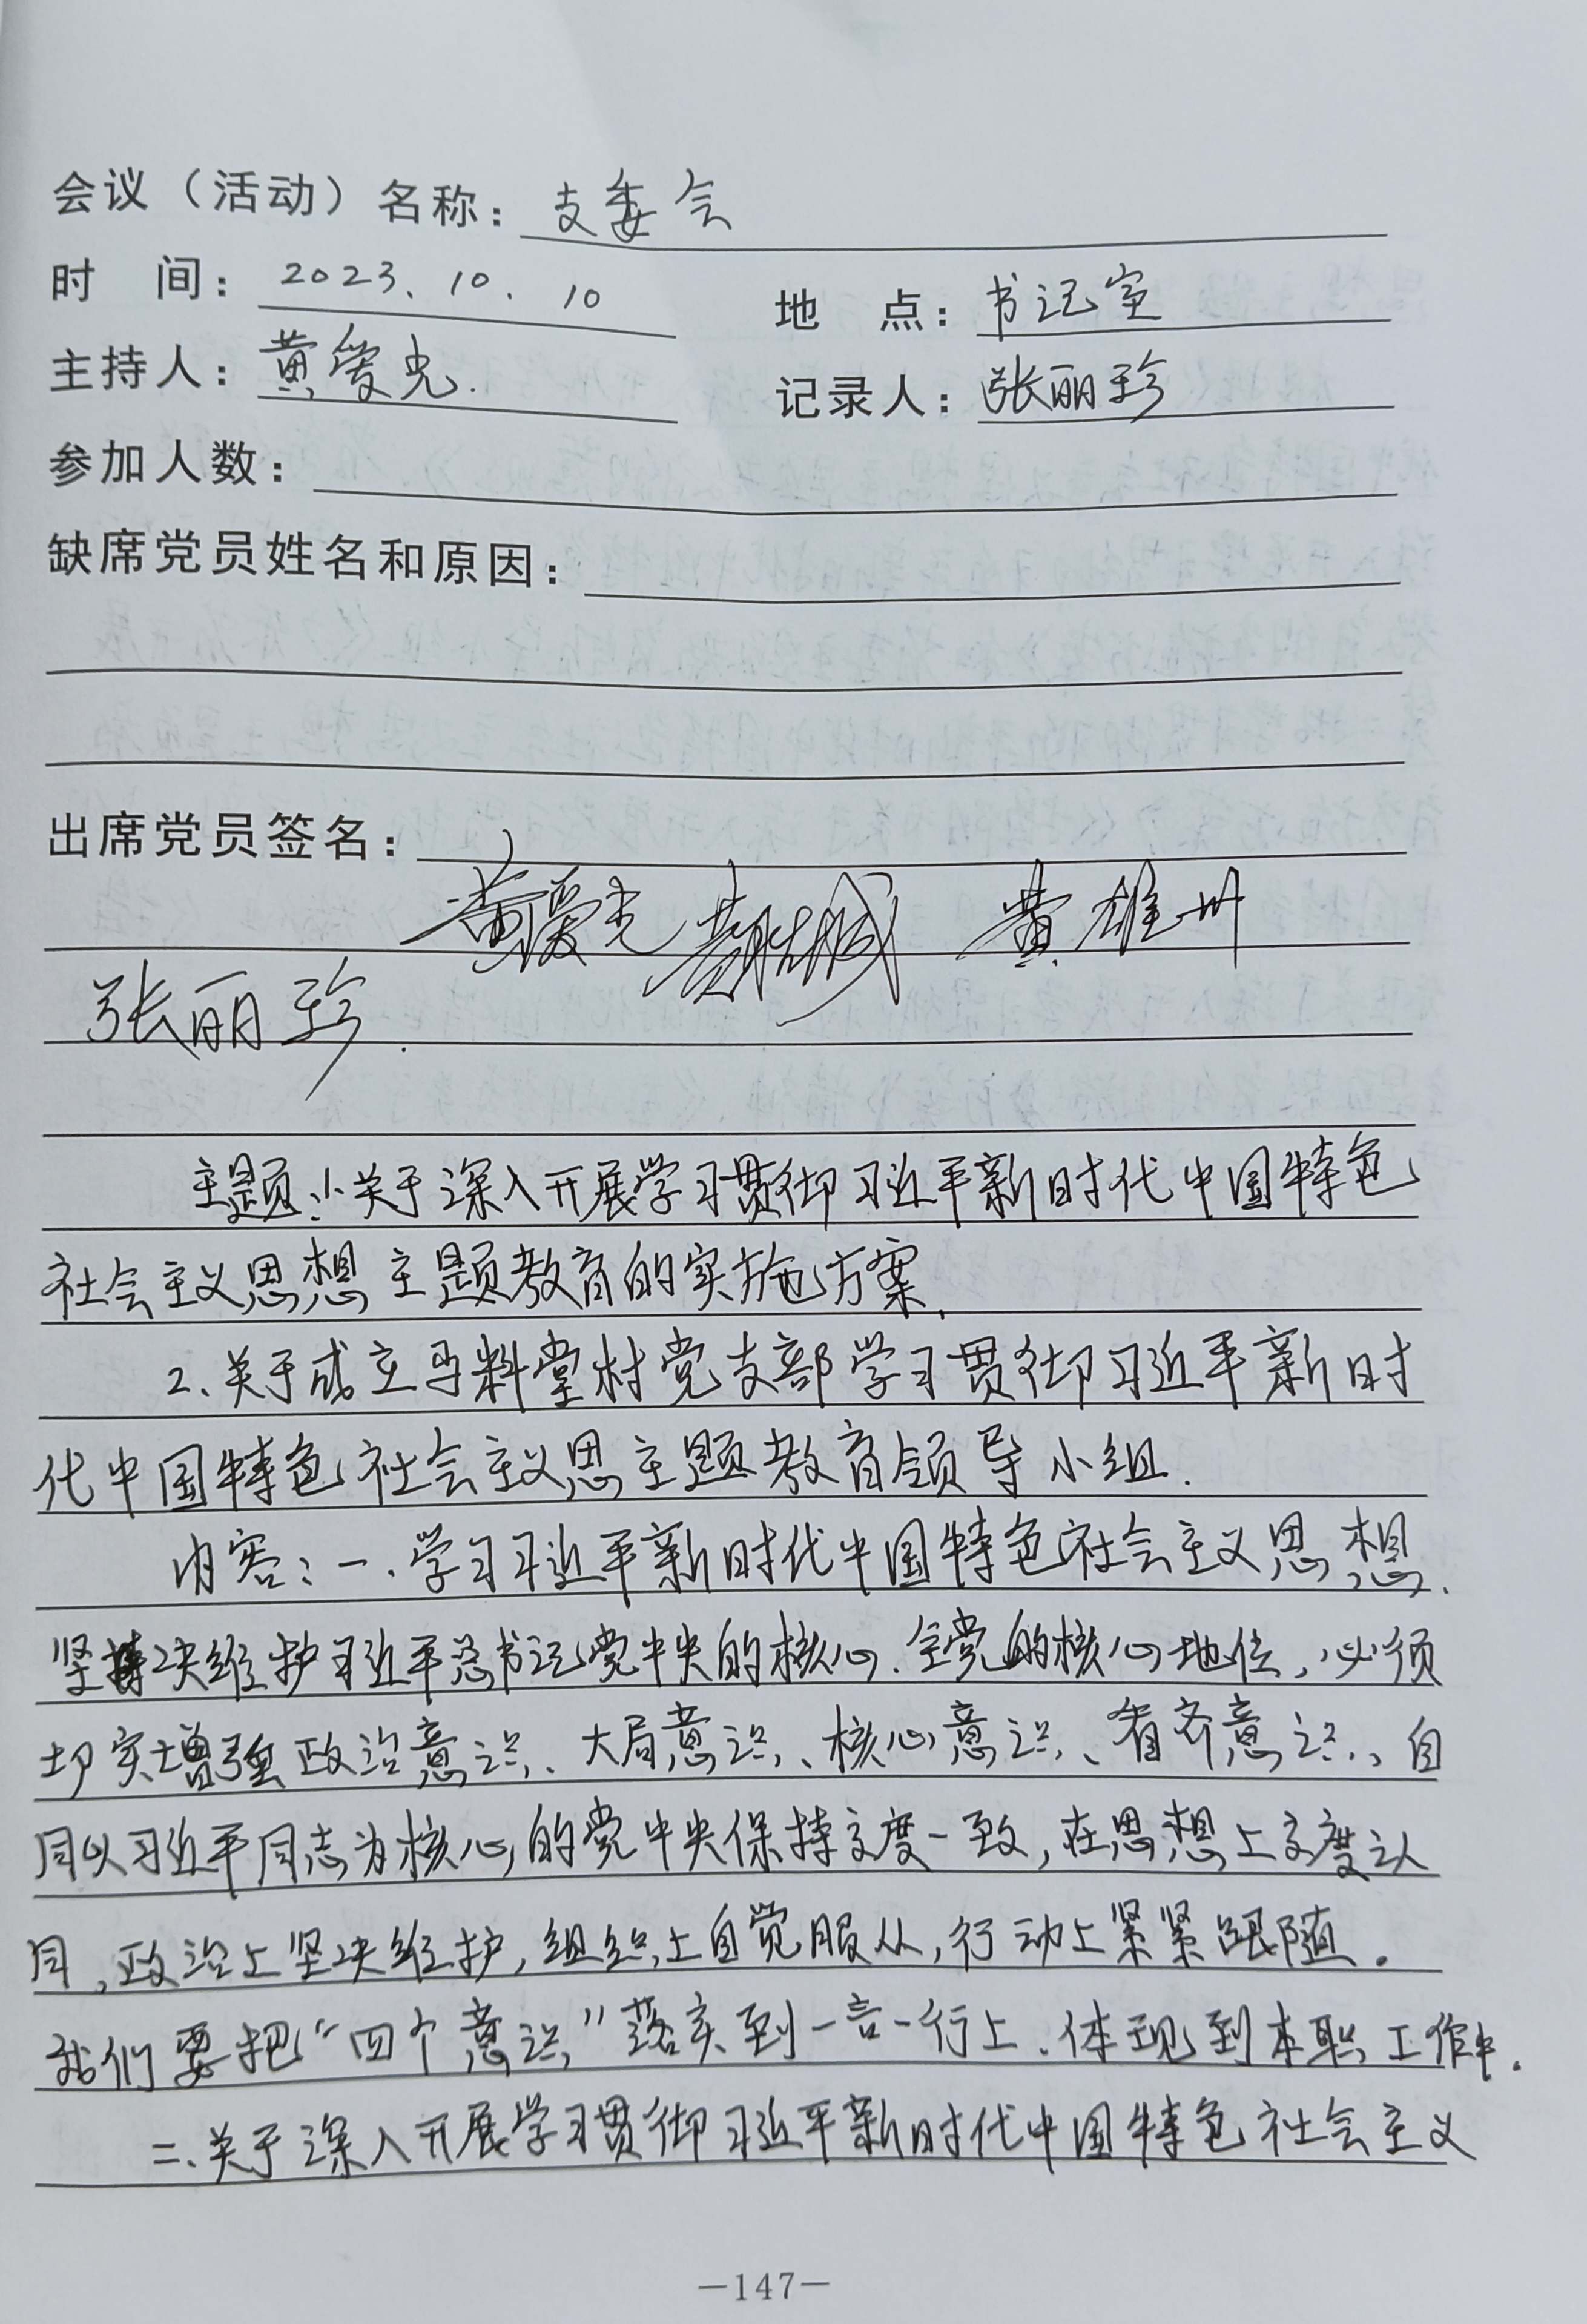 会议（活动）名称：支委会
时 间：2023、10、10 地 点：书记室
主持人：黄爱光. 记录人：张丽珍
参加人数：
缺席党员姓名和原因：
出席党员签名：
黄爱光 黄雄州
张丽珍.
主题：1、关于深入开展学习贯彻习近平新时代中国特色
社会主义思想主题教育的实施方案.
2、关于成立马料堂村党支部学习贯彻习近平新时
代中国特色社会主义思主题教育领导小组.
内容：一.学习习近平新时代中国特色社会主义思想.
坚持决维护习近平总书记党中央的核心.全党的核心地位，必须
切实增强政治意识、大局意识、核心意识、看齐意识、自
同以习近平同志为核心的党中央保持高度一致，在思想上高度认
同，政治上坚决维护，组织上自觉服从，行动上紧紧跟随。
我们要把“四个意识”落实到一言一行上、体现到本职工作中.
二.关于深入开展学习贯彻习近平新时代中国特色社会主义
—147—